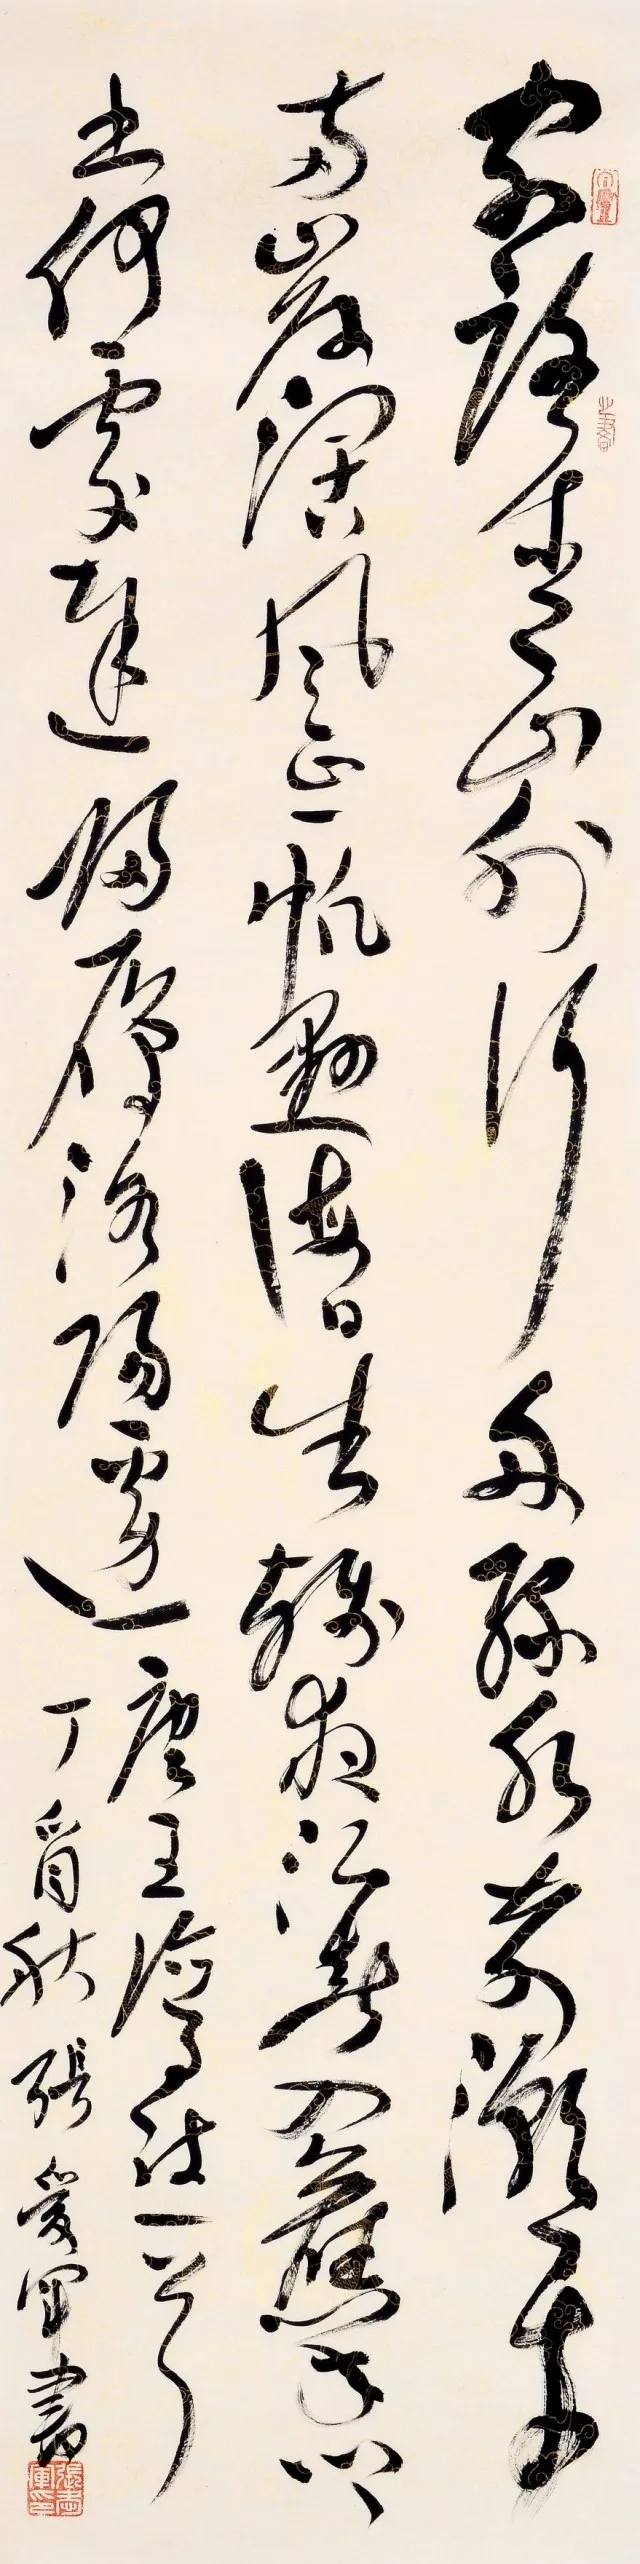 客路青山外行舟綠水前潮平
兩岸闊風正一帆懸海日生殘夜江春入舊年鄉
書何處達歸雁洛陽邊
唐王灣詩一首
丁酉秋張愛軍書